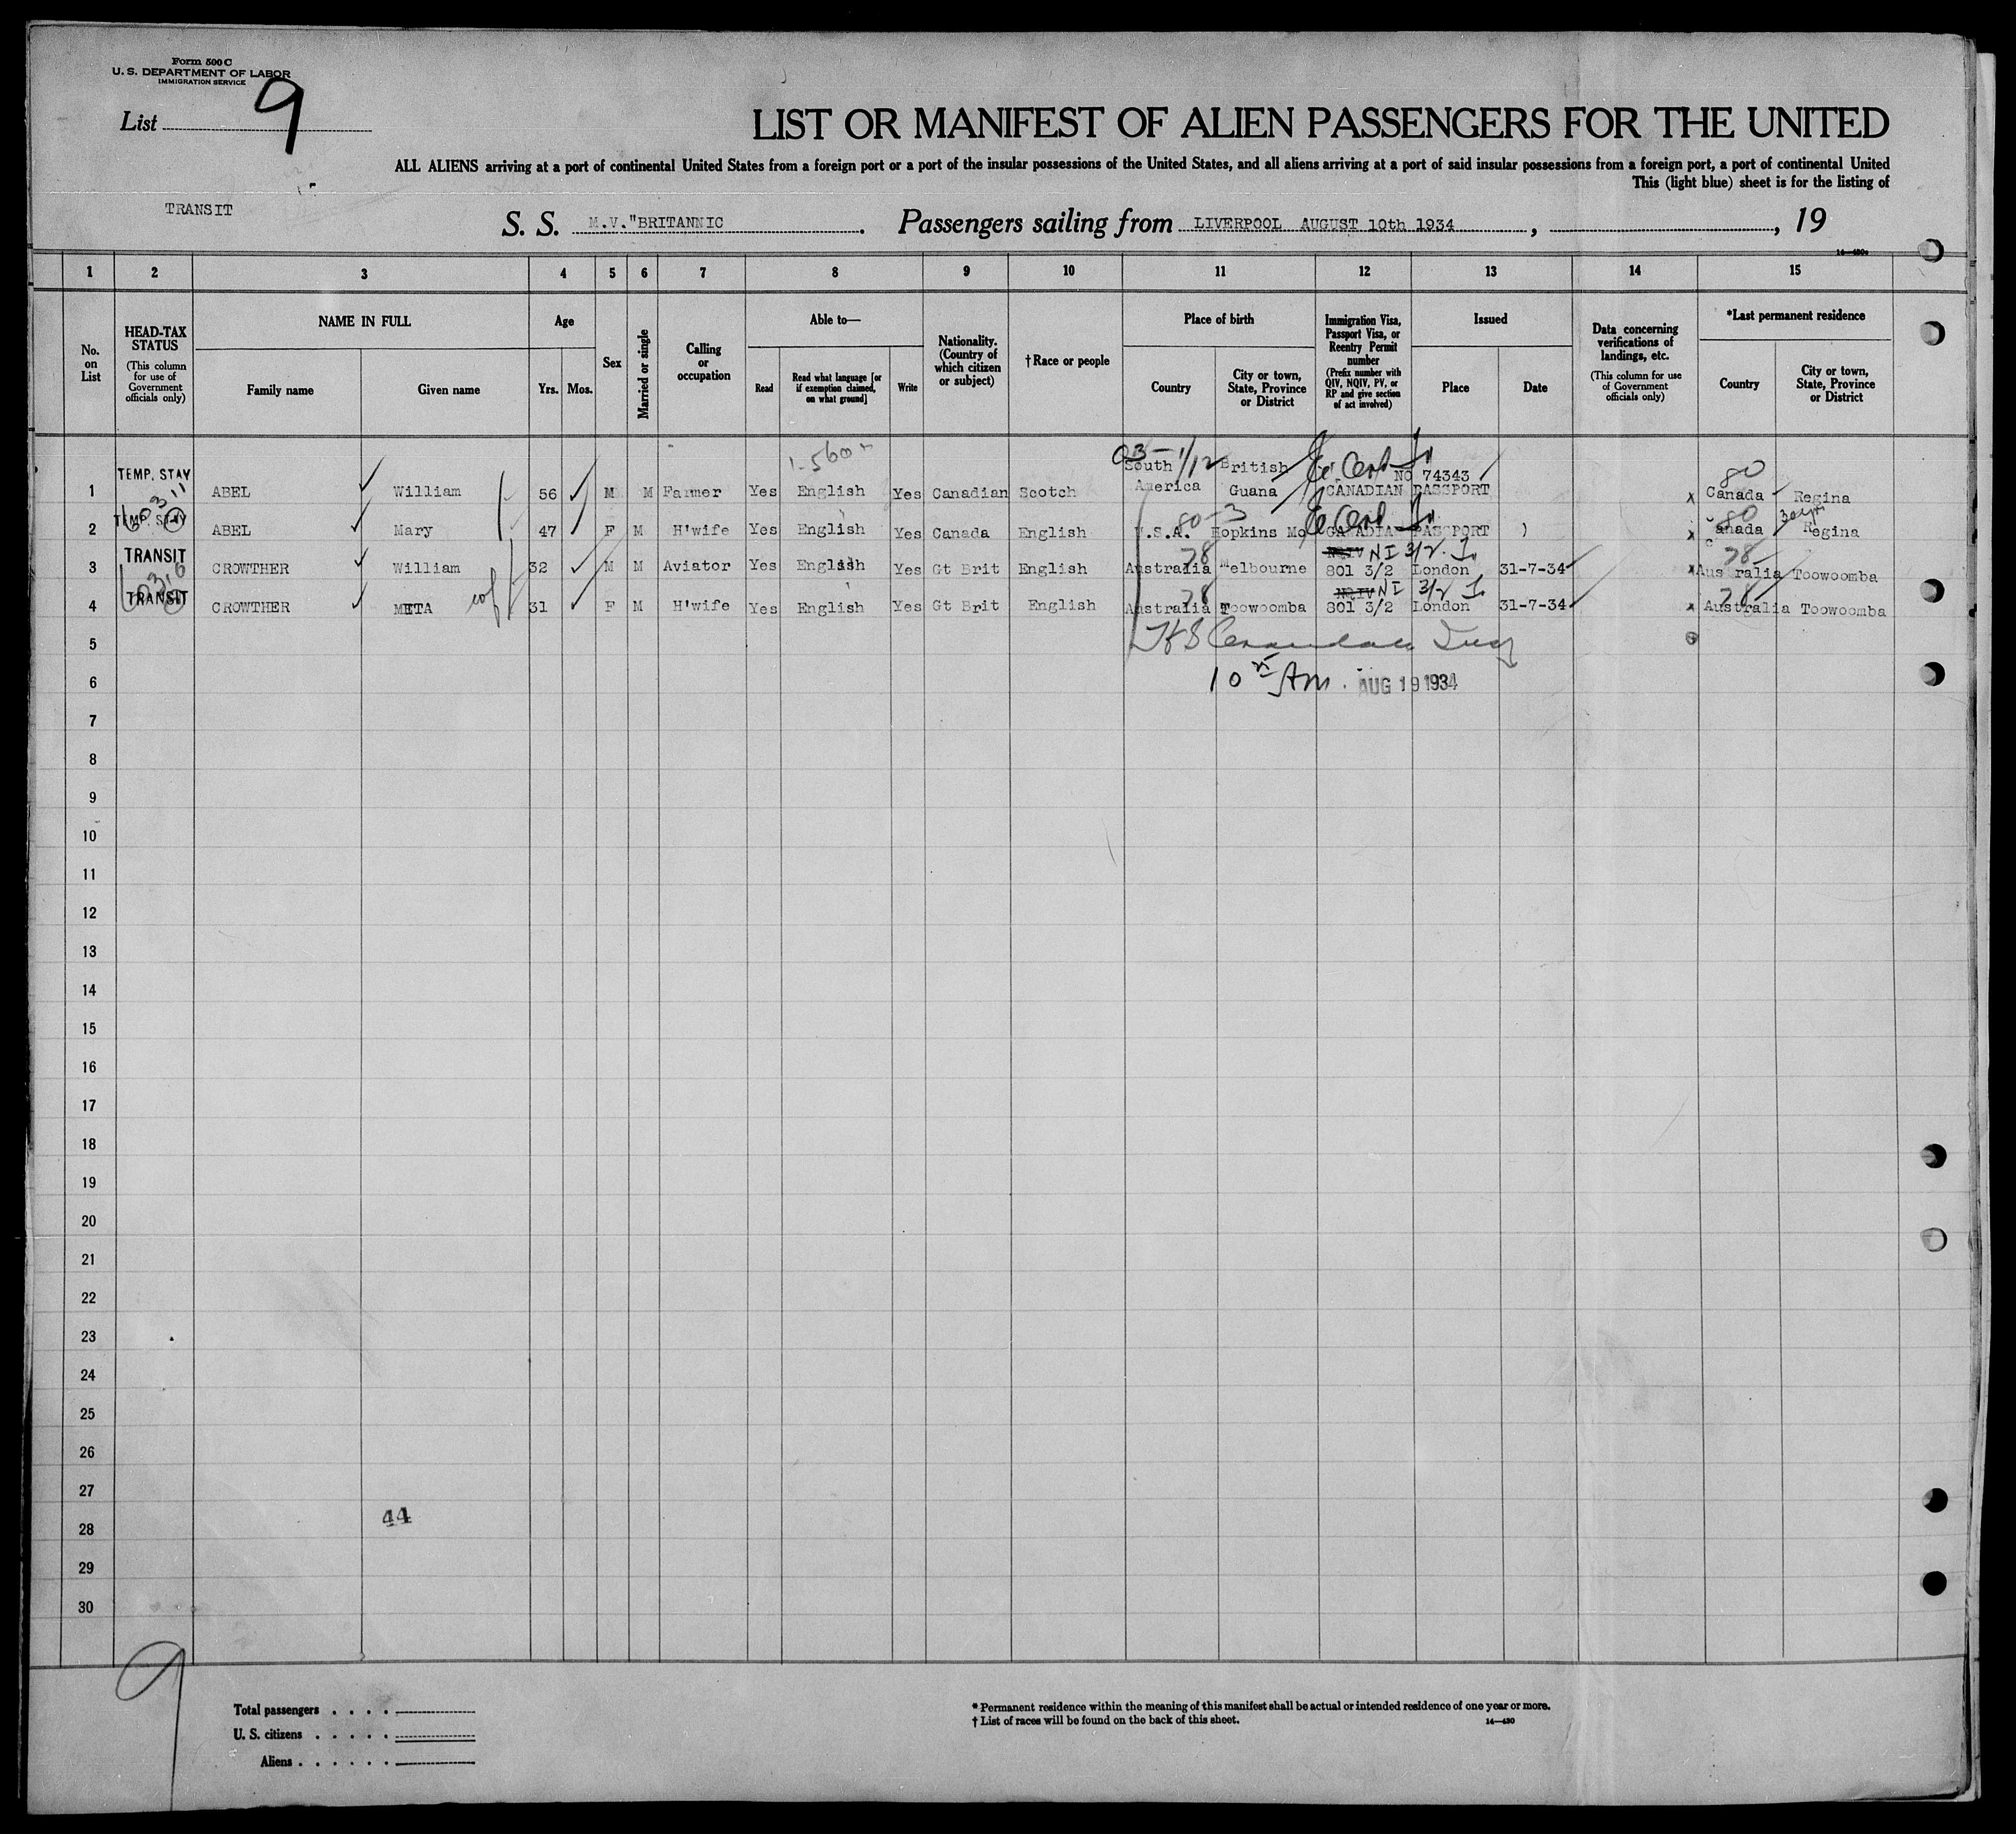 Form 500 C
U. S. DEPARTMENT OF LABOR
IMMIGRATION SERVICE
List 9
LIST OR MANIFEST OF ALIEN PASSENGERS FOR THE UNITED
ALL ALIENS arriving at a port of continental United States from a foreign port or a port of the insular possessions of the United States, and all aliens arriving at a port of said insular possessions from a foreign port, a port of continental United
This (light blue) sheet is for the listing of
TRANSIT
S. S. M.V."BRITANNIC. Passengers sailing from LIVERPOOL AUGUST 10th 1934, , 19
14—430c
1 2 3 4 5 6 7 8 9 10 11 12 13 14 15
No. on List
HEAD-TAX STATUS
(This column for use of Government officials only)
NAME IN FULL
Family name Given name
Age
Yrs. Mos.
Sex
Married or single
Calling or occupation
Able to—
Read
Read what language [or if exemption claimed, on what ground]
Write
Nationality. (Country of which citizen or subject)
† Race or people
Place of birth
Country
City or town, State, Province or District
Immigration Visa, Passport Visa, or Reentry Permit number
(Prefix number with QIV, NQIV, PV, or RP and give section of act involved)
Issued
Place Date
Data concerning verifications of landings, etc.
(This column for use of Government officials only)
*Last permanent residence
Country
City or town, State, Province or District
03— 1/12 80
TEMP. STAY South British NO 74343
1 ABEL William 56 M M Farmer Yes English Yes Canadian Scotch America Guana CANADIAN PASSPORT x Canada Regina
80-3 80 30 yrs
TEMP. STAY
2 ABEL Mary 47 F M H'wife Yes English Yes Canada English U.S.A. Hopkins Mo CANADIAN PASSPORT ) x Canada Regina
TRANSIT 78 NQIV NI 3/2. 78
3 CROWTHER William 32 M M Aviator Yes English Yes Gt Brit English Australia Melbourne 801 3/2 London 31-7-34 x Aus ralia Toowoomba
TRANSIT 78 NQIV NI 3/2 78
4 CROWTHER META wf 31 F M H'wife Yes English Yes Gt Brit English Australia Toowoomba 801 3/2 London 31-7-34 x Australia Toowoomba
5
6 10 Am. AUG 19 1934
7
8
9
10
11
12
13
14
15
16
17
18
19
20
21
22
23
24
25
26
27
44
28
29
30
9
Total passengers . . . .
U. S. citizens . . . . .
Aliens . . . . . .
* Permanent residence within the meaning of this manifest shall be actual or intended residence of one year or more.
† List of races will be found on the back of this sheet. 14—430